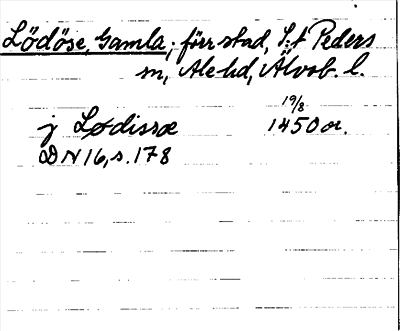 Lödöse, Gamla; förr stad, S:t Peders
sn, Ale hd, Älvsb. l.
19/8
j Lødissæ 1450 or.
DN 16, s. 178